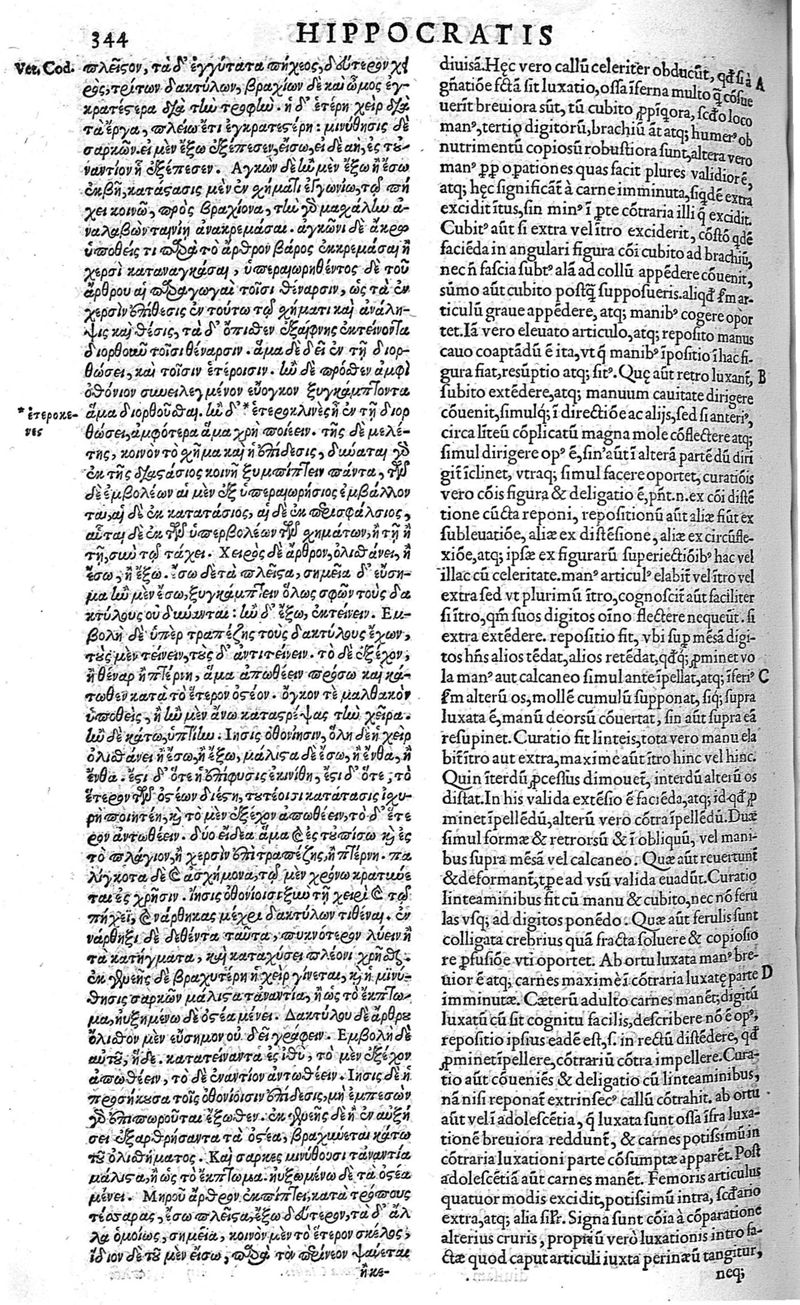 344 HIPPOCRATIS
Vet. Cod.
πλεῖϛον, τὰ δ' ἐγγύτατα πήχεος, δεύτερον χει
ρὸς, τρίτων δακτύλων, βραχίων δὲ καὶ ὦμος ἐγ
κρατέϛερα διὰ τὴν τροφὴν. ἡ δ' ἑτέρη χεὶρ διὰ
τὰ ἔργα, πλείω ἔτι ἐγκρατεϛέρη: μινύθησις δὲ
σαρκῶν. εἰ μὲν ἔξω ἐξέπεσεν, εἴσω, εἰ δὲ μὴ, ἐς του
ναντίον ἢ ἐξέπεσεν. Ἀγκὼν δὲ ἢν μὲν ἔξω ἢ ἔσω
ἐκβῇ, κατάϛασις μὲν ἐν σχήματι ἐγγωνίῳ, τῷ πή
χει κοινῷ, πρὸς βραχίονα, τὴν γὸ μασχάλην ἀ-
ναλαβὼν ταινίῃ ἀνακρεμάσαι. ἀγκῶνι δὲ ἄκρῳ
ὑποθείς τι παρὰ τὸ ἄρθρον βάρος ἐκκρεμάσαι ἢ
χερσὶ καταναγκάσαι, ὑπεραιωρηθέντος δὲ τοῦ
ἄρθρου αἱ παραγωγαὶ τοῖσι θέναρσιν, ὡς τὰ ἐν
χερσὶν ἐπίδεσις ἐν τούτῳ τῷ σχήματι καὶ ἀνάλη-
ψις καὶ θέσις, τὰ δ' ὄπισθεν ἐξαίφνης ἐκτείνοντα
διορθοῦν τοῖσι θέναρσιν. ἅμα δὲ δεῖ ἐν τῇ διορ-
θώσει, καὶ τοῖσιν ἑτέροισιν. ἢν δὲ πρόσθεν ἀμφὶ
ὀθόνιον συνειλεγμένον εὔογκον ξυγκάμπτοντα
* ἑτεροκε-
νες
ἅμα διορθοῦσθαι. ἢν δ' * ἑτεροκλινὲς ᾖ ἐν τῇ διορ
θώσει, ἀμφότερα ἅμα χρὴ ποιέειν. τῆς δὲ μελέ-
της, κοινὸν τὸ σχῆμα καὶ ἡ ἐπίδεσις, δύναται γὸ
ἐκ τῆς διαϛάσιος κοινῇ ξυμπίπτειν πάντα, τῶν
δὲ ἐμβολέων αἱ μὲν ἐξ ὑπεραιωρήσιος ἐμβάλλον
ται, αἱ δὲ ἐκ κατατάσιος, αἱ δὲ ἐκ περισφάλσιος,
αὗται δὲ ἐκ τῶν ὑπερβολέων τῶν σχημάτων, ἢ τῇ ἢ
τῇ, σὺν τῷ τάχει. Χειρὸς δὲ ἄρθρον, ὀλισθάνει, ἢ
ἔσω, ἢ ἔξω. ἔσω δὲ τὰ πλεῖϛα, σημεῖα δ' εὔση-
μα ἢν μὲν ἔσω, ξυγκάμπτειν ὅλως σφῶν τοὺς δα
κτύλους οὐ δύνανται: ἢν δ' ἔξω, ἐκτείνειν. Εμ-
βολὴ δὲ ὑπὲρ τραπέζης τοὺς δακτύλους ἔχων,
τοὺς μὲν τείνειν, τοὺς δ' ἀντιτείνειν. τὸ δὲ ἐξέχον,
ἢ θέναρ ἢ πτέρνῃ, ἅμα ἀπωθέειν πρόσω καὶ κά-
τωθεν κατὰ τὸ ἕτερον ὀϛέον. ὄγκον τε μαλθακὸν
ὑποθεὶς, ἢ ἢν μὲν ἄνω καταϛρέψας τὴν χεῖρα.
ἢν δὲ κάτω, ὑπτίην. Ἴησις ὀθονίοισιν, ὅλη δὲ ἡ χεὶρ
ὀλισθάνει ἢ ἔσω, ἢ ἔξω, μάλιϛα δὲ ἔσω, ἢ ἔνθα, ἢ
ἔνθα. ἔϛι δ' ὅτε ἡ ἐπίφυσις ἐκινήθη, ἔϛι δ' ὅτε, τὸ
ἕτερον τῶν ὀϛέων διέϛη, τουτέοισι κατάτασις ἰσχυ-
ρὴ ποιητέη, κ τὸ μὲν ἐξέχον ἀπωθέειν, τὸ δ' ἕτε
ρον ἀντωθέειν. δύο εἴδεα ἅμα & ἐς τοὐπίσω κ ἐς
τὸ πλάγιον, ἢ χερσὶν ἐπὶ τραπέζης, ἢ πτέρνῃ. πα
λιγκοτα δὲ & ἀσχήμονα, τῷ μὲν χρόνῳ κρατύνε
ται ἐς χρῆσιν. Ἴησις ὀθονίοισι ξὺν τῇ χειρὶ & τῷ
πήχεϊ, & νάρθηκας μέχρι δακτύλων τιθέναι. ἐν
νάρθηξι δὲ δεθέντα ταῦτα, πυκνότερον λύειν ἢ
τὰ κατήγματα, καὶ καταχύσει πλέονι χρῆσθαι.
ἐκ γενεῆς δὲ βραχυτέρη ἡ χεὶρ γίνεται, κ ἡ μινύ-
θησις σαρκῶν μάλιϛα τἀναντία, ἢ ὡς τὸ ἔκπτω-
μα, ηὐξημένῳ δὲ τὰ ὀϛέα μένει. Δακτύλου δὲ ἄρθρον
ὀλισθὸν μὲν εὔσημον οὐ δεῖ γράφειν. Εμβολὴ δὲ
αὐτοῦ, ἥδε. κατατείναντα ἐς ἰθὺ, τὸ μὲν ἐξέχον
ἀπωθέειν, τὸ δὲ ἐναντίον ἀντωθέειν. Ἴησις δὲ ἡ
προσήκουσα τοῖς ὀθονίοισιν ἐπίδεσις, μὴ ἐμπεσὸν
γὸ ἐπιπωροῦται ἔξωθεν. ἐκ γενεῆς δὲ ἢ ἐν αὐξή
σει ἐξαρθρήσαντα τὰ ὀϛέα, βραχύνεται κάτω
τοῦ ὀλισθήματος. Καὶ σαρκες μινύθουσι τἀναντία
μάλιϛα, ἢ ὡς τὸ ἔκπτωμα. ηὐξημένῳ δὲ τὰ ὀϛέα
μένει. Μηροῦ ἄρθρον ἐκπίπτει, κατὰ τρόπους
τέσσαρας, ἔσω πλεῖϛα, ἔξω δεύτερον, τὰ δ' ἄλ
λα ὁμοίως, σημεῖα, κοινὸν μὲν τὸ ἕτερον σκέλος,
ἴδιον δὲ τοῦ μὲν εἴσω, παρὰ τὸν περίνεον ψαύεται
ἡ κε-
diuisā. Hęc vero callū celeriter obducūt, qđ si à A
gñatiõe fctā sit luxatio, ossa iferna multo q̃ cõsue
uerīt breuiora sūt, tū cubito ꝓpiq̃ora, scđo loco
man⁹, tertio digitorū, brachiū āt atq; humer⁹ ob
nutrimentū copiosū robustiora sunt, altera vero
man⁹ ꝓp opationes quas facit plures validior ē,
atq; hęc significāt à carne imminuta, siqđē extra
excidit itus, sin min⁹ i pte cõtraria illi q̃ excidit.
Cubit⁹ aūt si extra vel ītro exciderit, cõstõ qđē
faciēda in angulari figura cõi cubito ad brachiū,
nec ñ fascia subt⁹ alā ad collū appēdere cõuenit,
sūmo aūt cubito postq̃ supposueris. aliqđ ꝓm ar-
ticulū graue appēdere, atq; manib⁹ cogere opor
tet. Iā vero eleuato articulo, atq; reposito manus
cauo coaptādū ē ita, vt q̃ manib⁹ ipositio i hac fi-
gura fiat, resūptio atq; sit⁹. Quę aūt retro luxant, B
subito extēdere, atq; manuum cauitate dirigere
cõuenit, simulq; i directiõe ac alijs, sed si anteri⁹,
circa līteū cõplicatū magna mole cõflectere atq;
simul dirigere op⁹ ē, sin aūt i alterā partē dū diri
git īclinet, vtraq; simul facere oportet, curatiõis
vero cõis figura & deligatio ē, pñt. n. ex cõi distē
tione cūcta reponi, repositionū aūt aliæ fiūt ex
subleuatiõe, aliæ ex distēsione, aliæ ex circūfle-
xiõe, atq; ipsæ ex figurarū superiectiõib⁹ hac vel
illac cū celeritate. man⁹ articul⁹ elabit̃ vel ītro vel
extra sed vt plurimū ītro, cognoscit̃ aūt faciliter
si ītro, qm̄ suos digitos oīno flectere nequeūt. si
extra extēdere. repositio fit, vbi sup mēsā digi-
tos hñs alios tēdat, alios retēdat, qđq; ꝓminet vo
la man⁹ aut calcaneo simul ante ipellat, atq; iferi⁹ C
ꝓm alterū os, mollē cumulū supponat, siq; supra
luxata ē, manū deorsū cõuertat, sin aūt supra eā
resupinet. Curatio fit linteis, tota vero manu ela
bit̃ ītro aut extra, maxime aūt ītro hinc vel hinc.
Quin īterdū ꝓcessus dimouet̃, interdū alterū os
distat. In his valida extēsio ē faciēda, atq; id qđ ꝓ
minet ipellēdū, alterū vero cõtra ipellēdū. Duæ
simul formæ & retrorsū & i obliquū, vel mani-
bus supra mēsā vel calcaneo. Quæ aūt reuertunt̃
& deformant, tpe ad vsū valida euadūt. Curatio
linteaminibus fit cū manu & cubito, nec nõ feru
las vsq; ad digitos ponēdo. Quæ aūt ferulis sunt
colligata crebrius quā fracta soluere & copiosio
re ꝑfusiõe vti oportet. Ab ortu luxata man⁹ bre-
uior ē atq; carnes maxime i cõtraria luxatę parte D
imminutæ. Cæterū adulto carnes manēt; digitū
luxatū cū sit cognitu facilis, describere nõ ē op⁹,
repositio ipsius eadē est, s. in rectū distēdere, qđ
ꝓminet ipellere, cõtrariū cõtra impellere. Cura-
tio aūt cõueniēs & deligatio cū linteaminibus,
nā nisi reponat̃ extrinsec⁹ callū cõtrahit. ab ortu
aūt vel i adolescētia, q̃ luxata sunt ossa ifra luxa-
tionē breuiora reddunt̃, & carnes potissimū in
cõtraria luxationi parte cõsumptæ apparēt. Post
adolescētiā aūt carnes manēt. Femoris articulus
quatuor modis excidit, potissimū intra, scđario
extra, atq; alia silr. Signa sunt cõia à cõparatione
alterius cruris, propriū verò luxationis intro fa-
ctæ quod caput articuli iuxta perinæū tangitur,
neq;